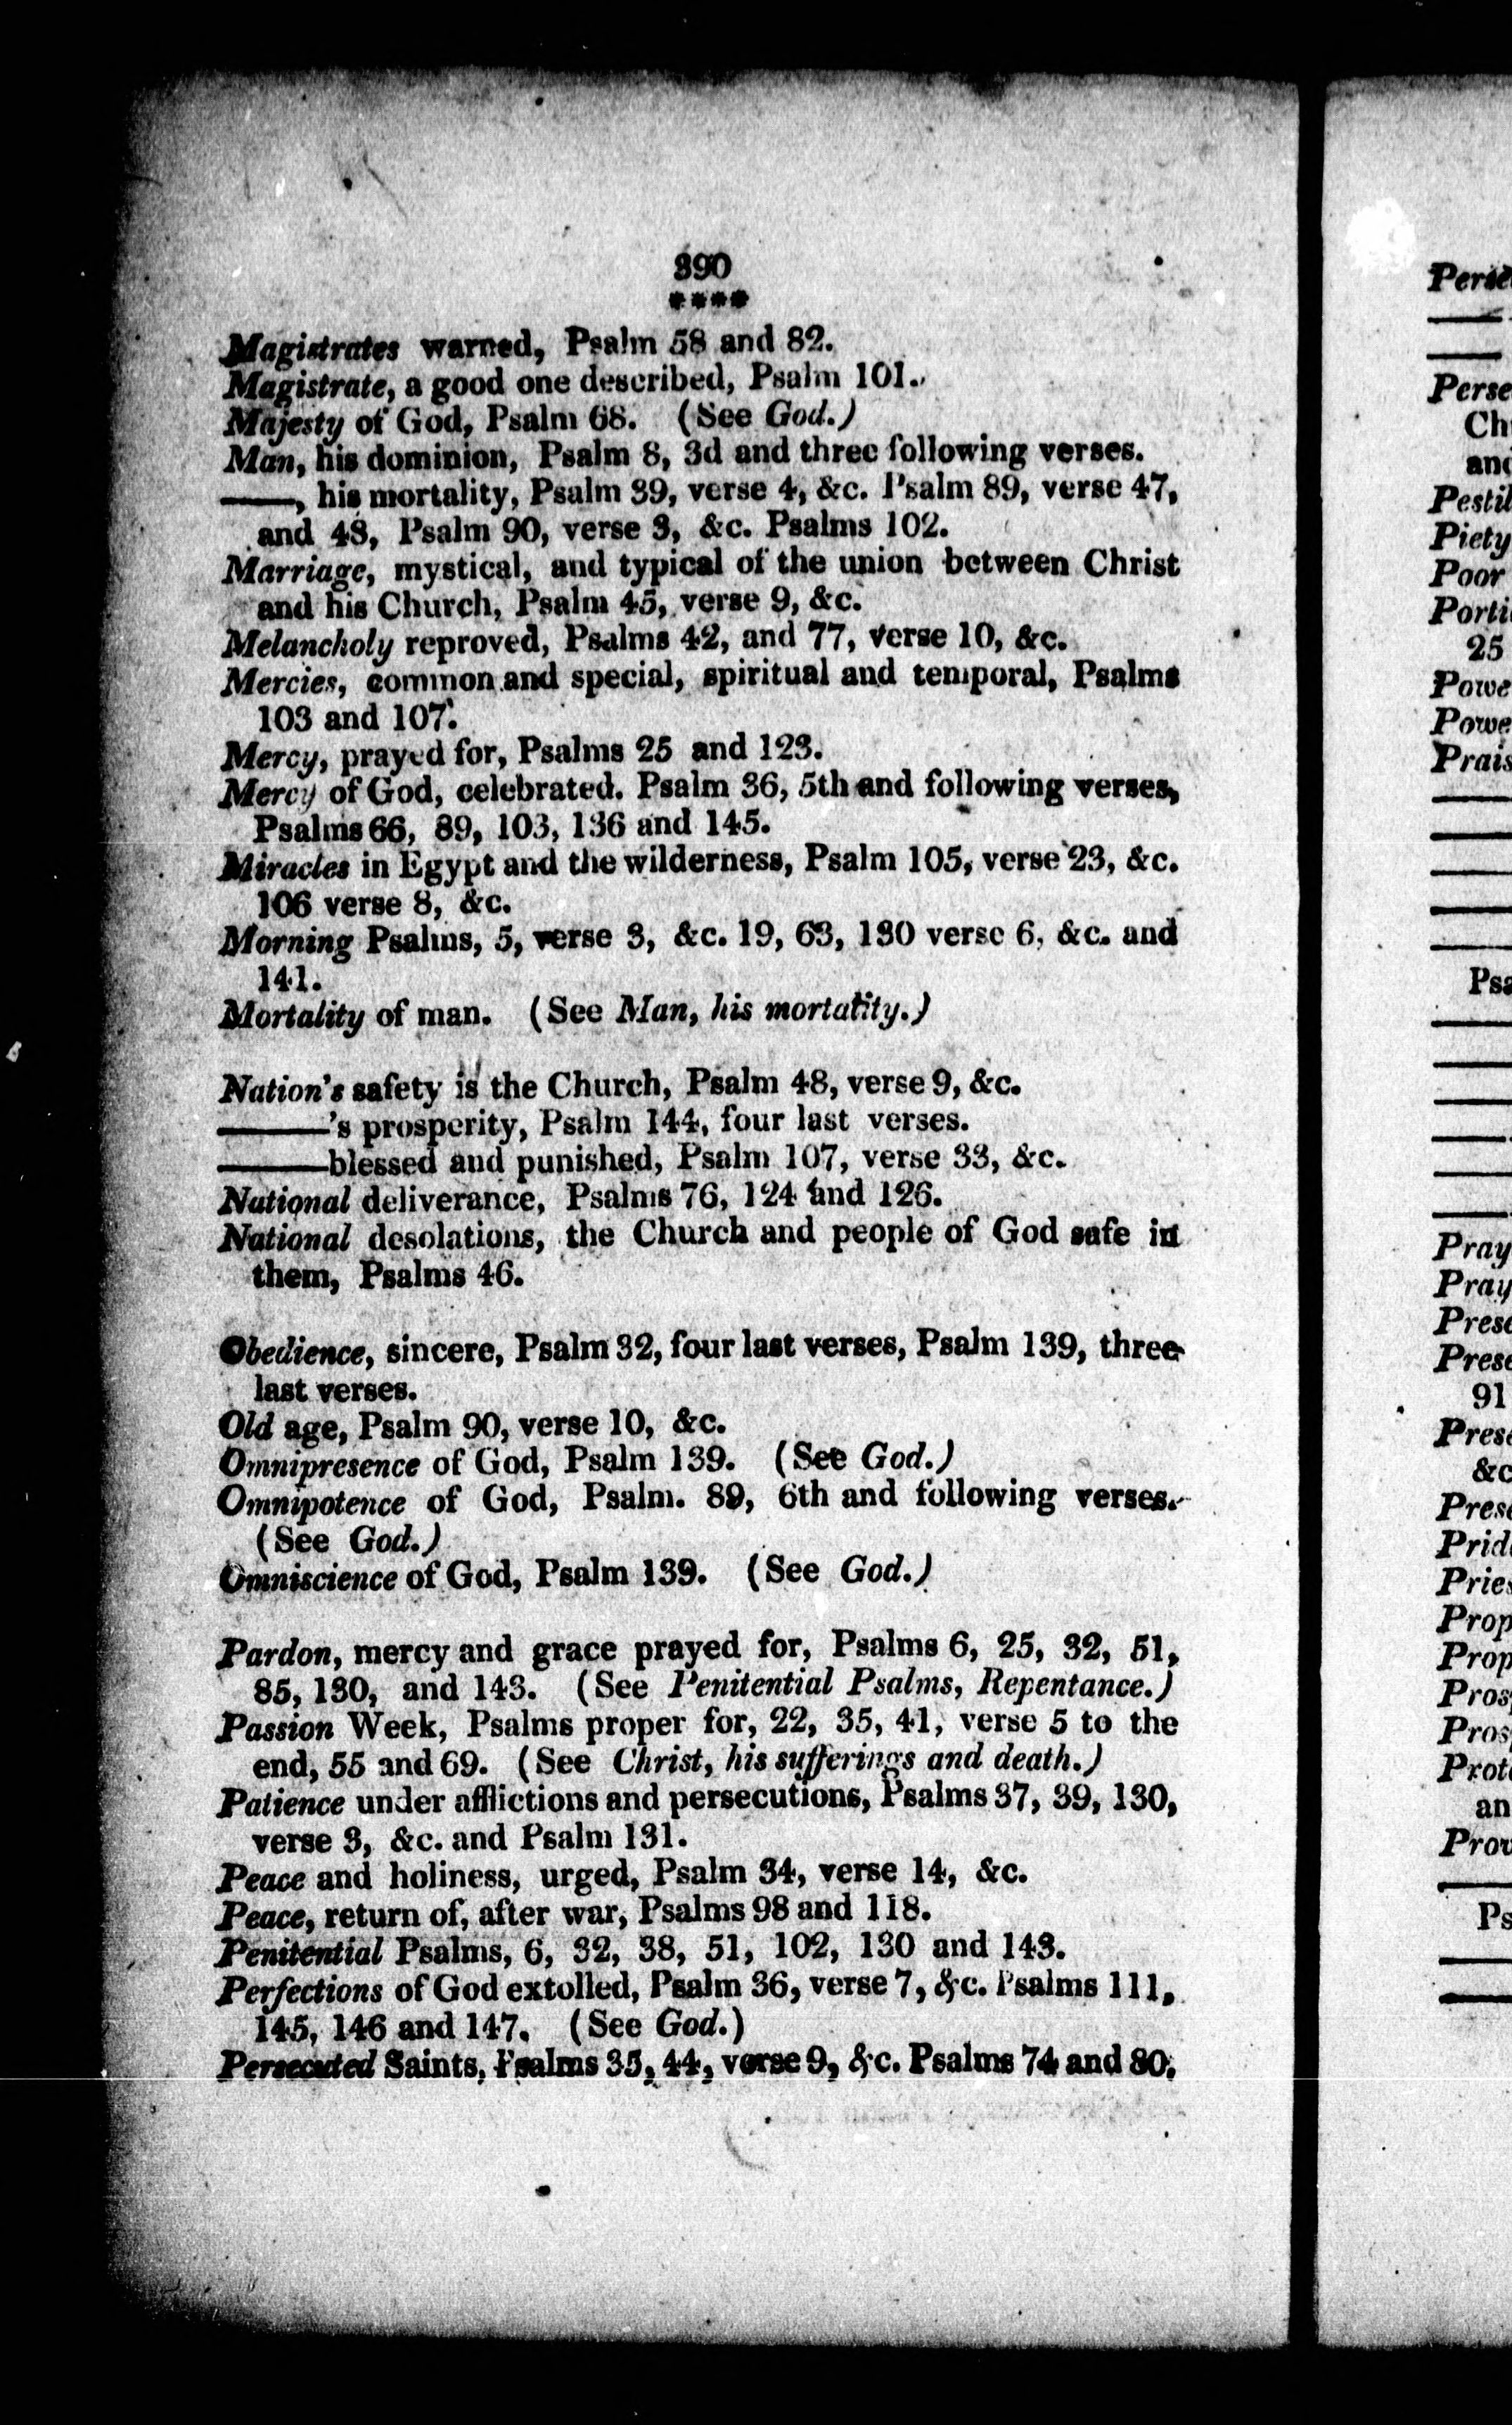 390
****
Magistrates warned, Psalm 58 and 82.
Magistrate, a good one described, Psalm 101.
Majesty of God, Psalm 68. (See God.)
Man, his dominion, Psalm 8, 3d and three following verses.
——, his mortality, Psalm 39, verse 4, &c. Psalm 89, verse 47,
and 48, Psalm 90, verse 3, &c. Psalms 102.
Marriage, mystical, and typical of the union between Christ
and his Church, Psalm 45, verse 9, &c.
Melancholy reproved, Psalms 42, and 77, verse 10, &c.
Mercies, common and special, spiritual and temporal, Psalms
103 and 107.
Mercy, prayed for, Psalms 25 and 123.
Mercy of God, celebrated. Psalm 36, 5th and following verses,
Psalms 66, 89, 103, 136 and 145.
Miracles in Egypt and the wilderness, Psalm 105, verse 23, &c.
106 verse 8, &c.
Morning Psalms, 5, verse 3, &c. 19, 63, 130 verse 6, &c. and
141.
Mortality of man. (See Man, his mortality.)
Nation's safety is the Church, Psalm 48, verse 9, &c.
———'s prosperity, Psalm 144, four last verses.
———blessed and punished, Psalm 107, verse 33, &c.
National deliverance, Psalms 76, 124 and 126.
National desolations, the Church and people of God safe in
them, Psalms 46.
Obedience, sincere, Psalm 32, four last verses, Psalm 139, three
last verses.
Old age, Psalm 90, verse 10, &c.
Omnipresence of God, Psalm 139. (See God.)
Omnipotence of God, Psalm. 89, 6th and following verses.
(See God.)
Omniscience of God, Psalm 139. (See God.)
Pardon, mercy and grace prayed for, Psalms 6, 25, 32, 51,
85, 130, and 143. (See Penitential Psalms, Repentance.)
Passion Week, Psalms proper for, 22, 35, 41, verse 5 to the
end, 55 and 69. (See Christ, his sufferings and death.)
Patience under afflictions and persecutions, Psalms 37, 39, 130,
verse 3, &c. and Psalm 131.
Peace and holiness, urged, Psalm 34, verse 14, &c.
Peace, return of, after war, Psalms 98 and 118.
Penitential Psalms, 6, 32, 38, 51, 102, 130 and 143.
Perfections of God extolled, Psalm 36, verse 7, &c. Psalms 111,
145, 146 and 147. (See God.)
Persecuted Saints, Psalms 35, 44, verse 9, &c. Psalms 74 and 80.